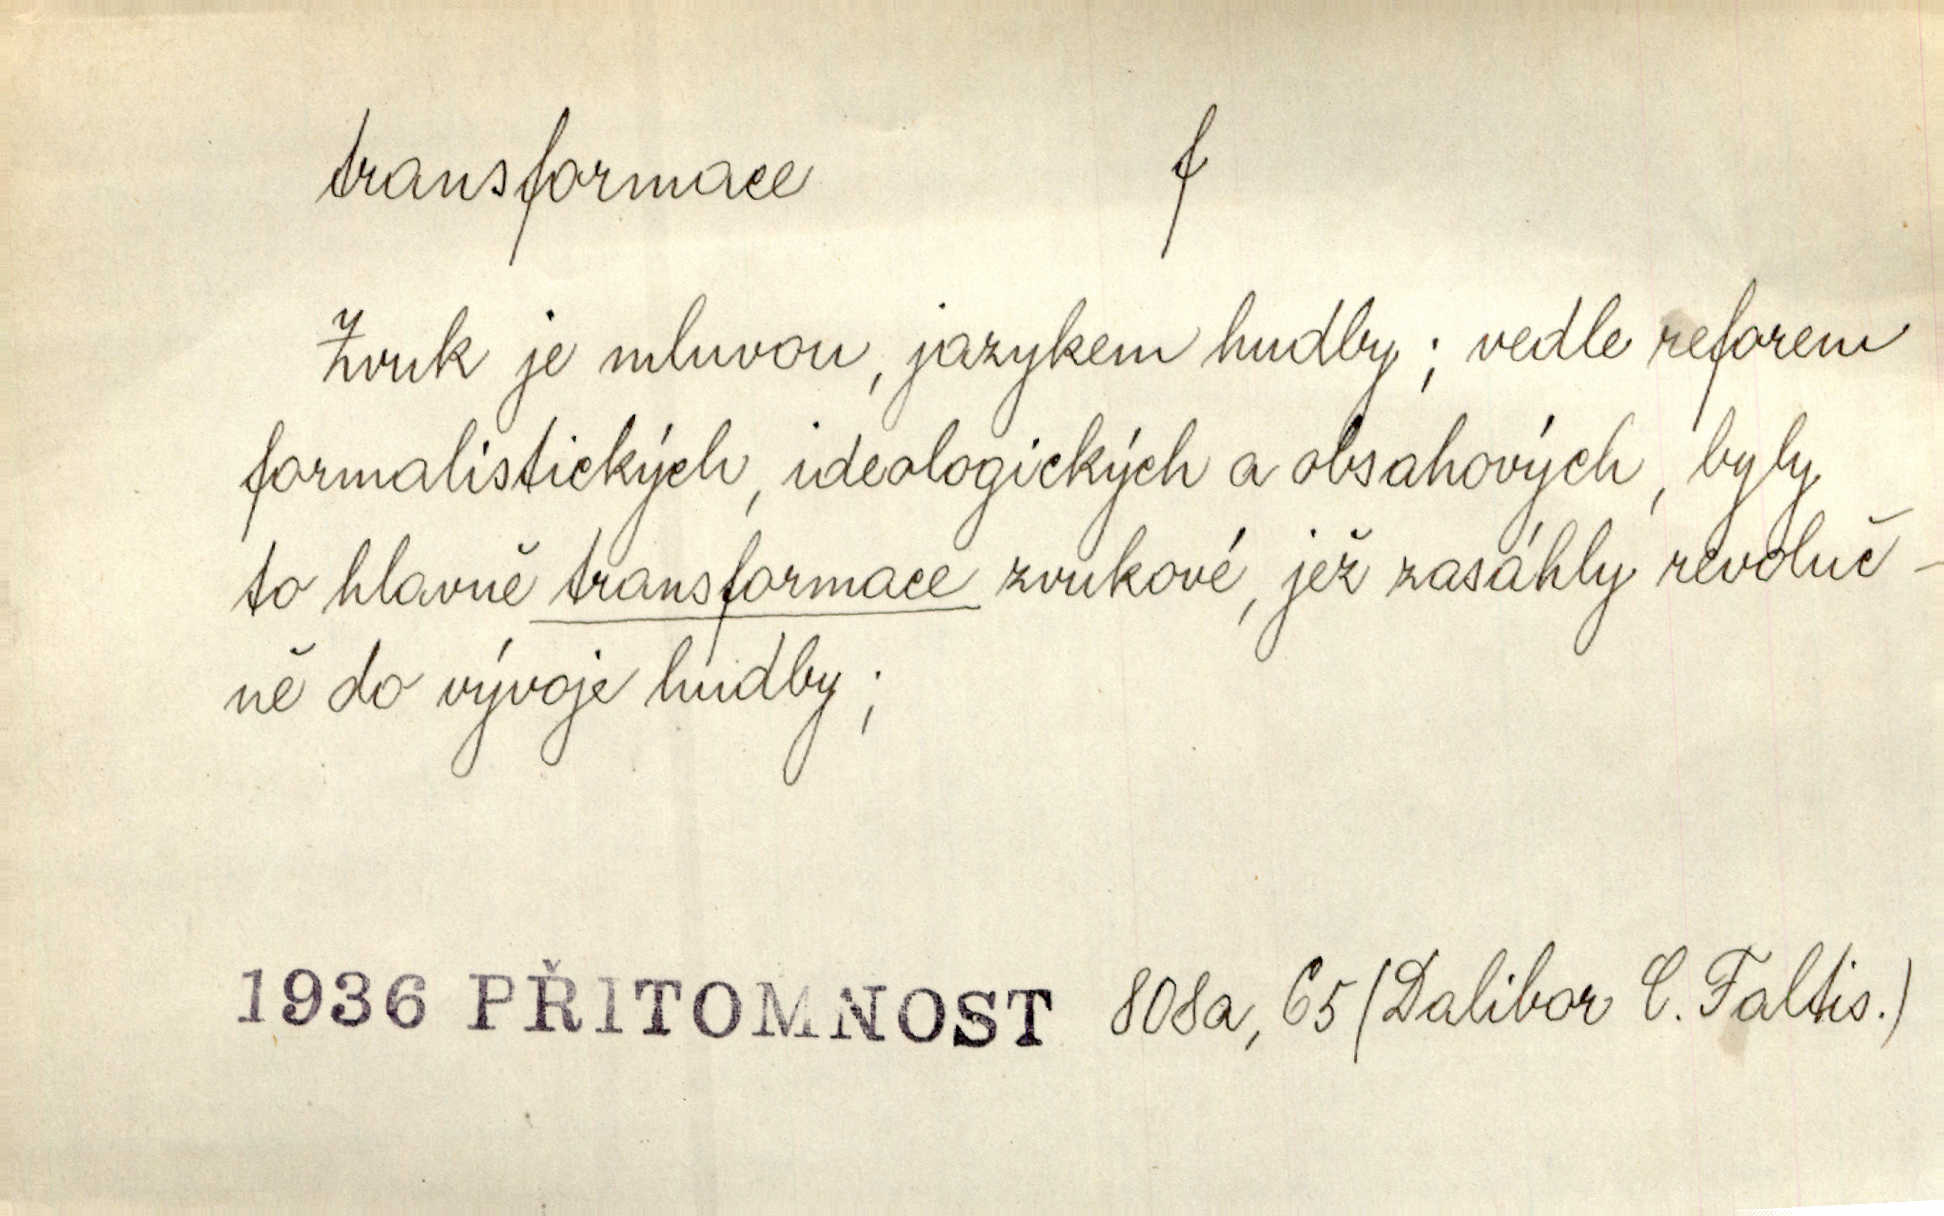 transformace f
Zvuk je mluvou, jazykem hudby; vedle reforem
formalistických, ideologických a obsahových, byly
to hlavně transformace zvukové, jež zasáhly revoluč-
ně do vývoje hudby;
1936 PŘITOMNOST 808a, 65 (Dalibor C. Faltis.)